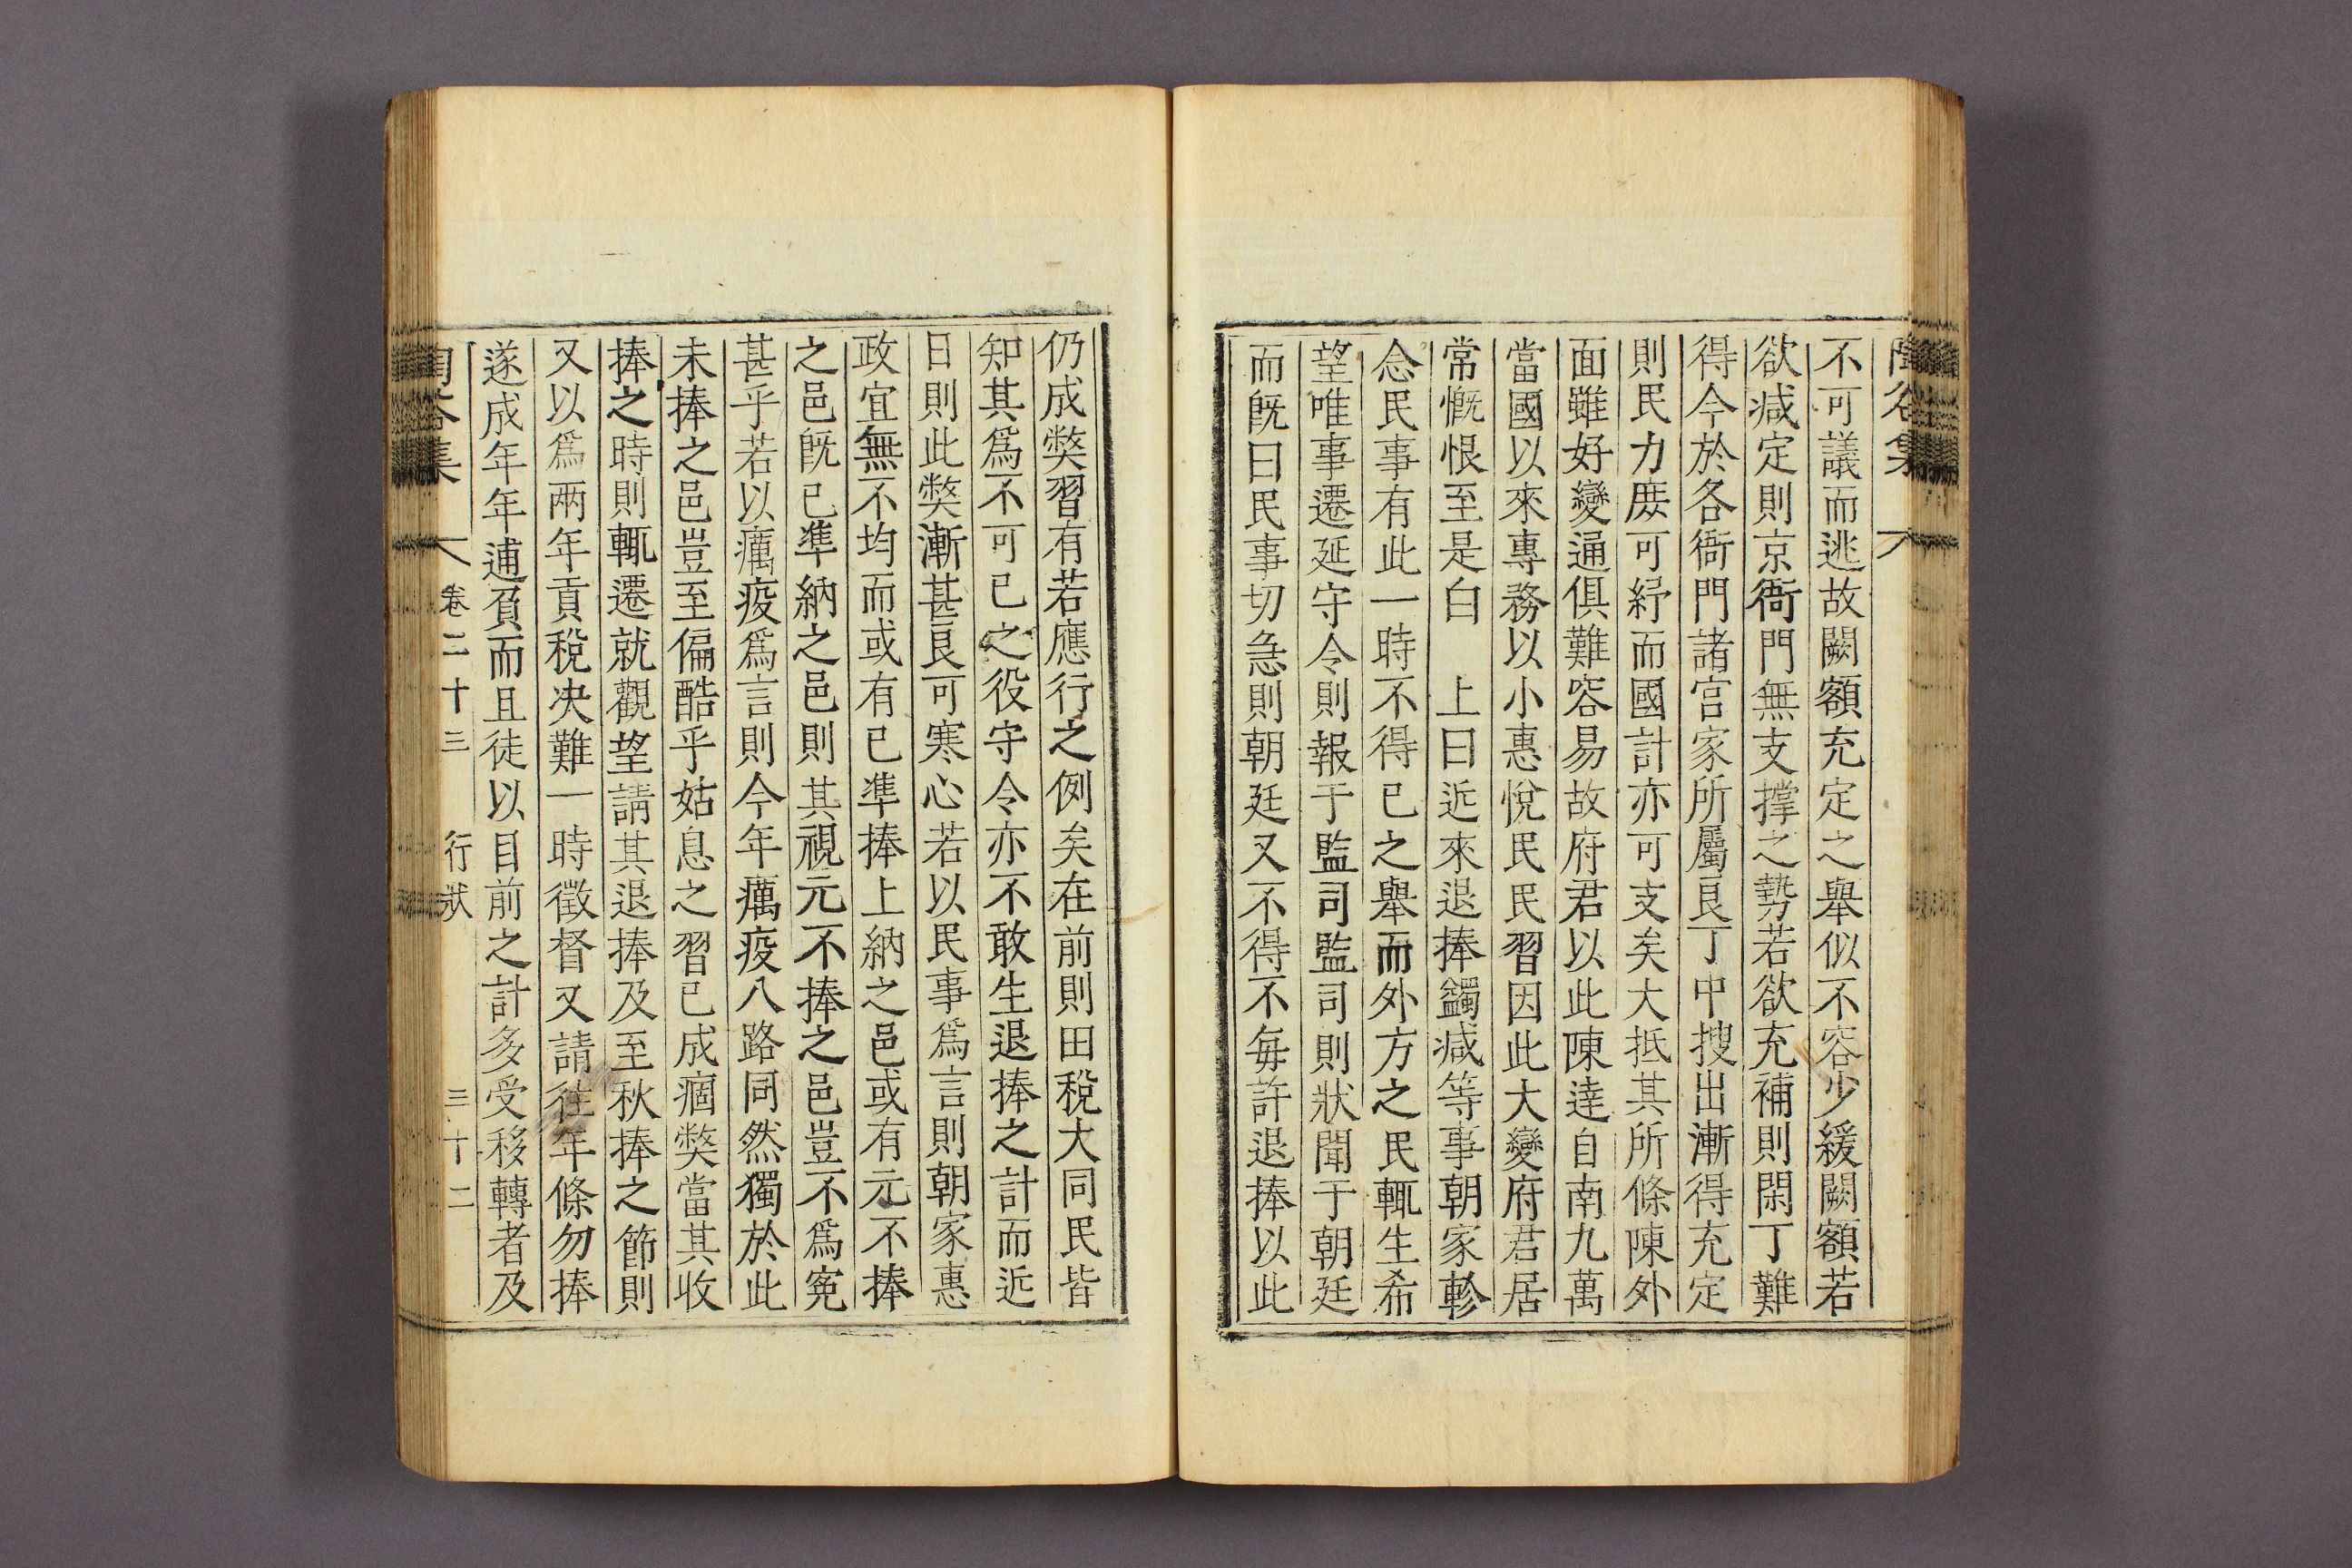 不可議而逃故闕額充定之舉似不容少緩闕額若
欲减定則京衙門無支撑之勢若欲充補則閑丁難
得今於各衙門諸宮家所屬良丁中搜出漸得充定
則民力庶可紓而國計亦可支矣大抵其所條陳外
面雖好變通俱難容易故府君以此陳達自南九萬
當國以來專務以小惠悅民民習因此大變府君居
常慨恨至是白　上曰近來退捧蠲减等事朝家軫
念民事有此一時不得已之舉而外方之民輒生希
望唯事遷延守令則報于監司監司則狀聞于朝廷
而旣曰民事切急則朝廷又不得不每許退捧以此
仍成弊習有若應行之例矣在前則田稅大同民皆
知其爲不可已之役守令亦不敢生退捧之計而近
日則此弊漸甚良可寒心若以民事爲言則朝家惠
政宜無不均而或有已準捧上納之邑或有元不捧
之邑旣已準納之邑則其視元不捧之邑豈不爲寃
甚乎若以癘疫爲言則今年癘疫八路同然獨於此
未捧之邑豈至偏酷乎姑息之習已成痼弊當其收
捧之時則輒遷就觀望請其退捧及至秋捧之節則
又以爲兩年貢稅决難一時徵督又請往年條勿捧
遂成年年逋負而且徒以目前之計多受移轉者及
陶谷集　卷二十三　行狀　三十二